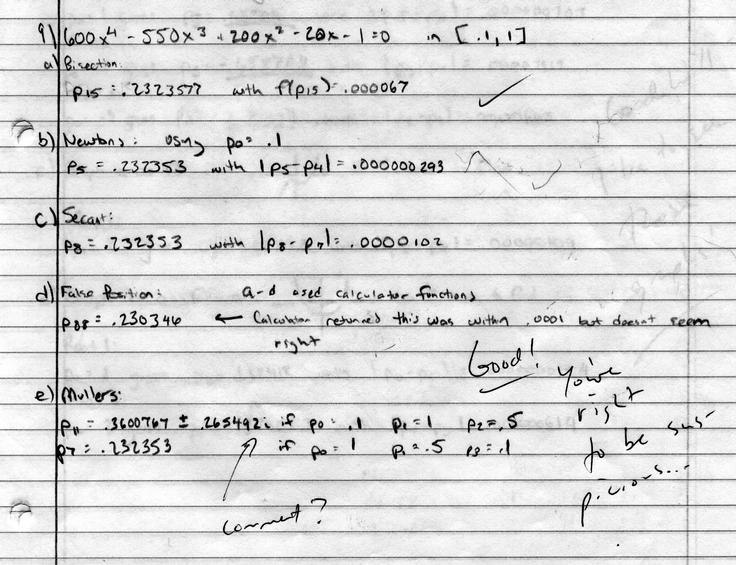 9) 600x⁴ - 550x³ + 200x² - 20x - 1 = 0 in [.1, 1]
a) Bisection:
p₁₅ = .2323577 with f(p₁₅) = .000067
b) Newtons: using p₀ = .1
p₅ = .232353 with |p₅-p₄| = .000000293
c) Secant:
p₈ = .232353 with |p₈-p₇| = .0000102
d) False Position: a-d used calculator functions
p₈₈ = .230346 ← Calculator returned this was within .0001 but doesnt seem
right
Good! You're
right
to be sus-
picious...
e) Mullers:
p₁₁ = .3600767 ± .265492i if p₀ = .1 p₁ = 1 p₂ = .5
p₇ = .232353 if p₀ = 1 p₁ = .5 = .1
comment?